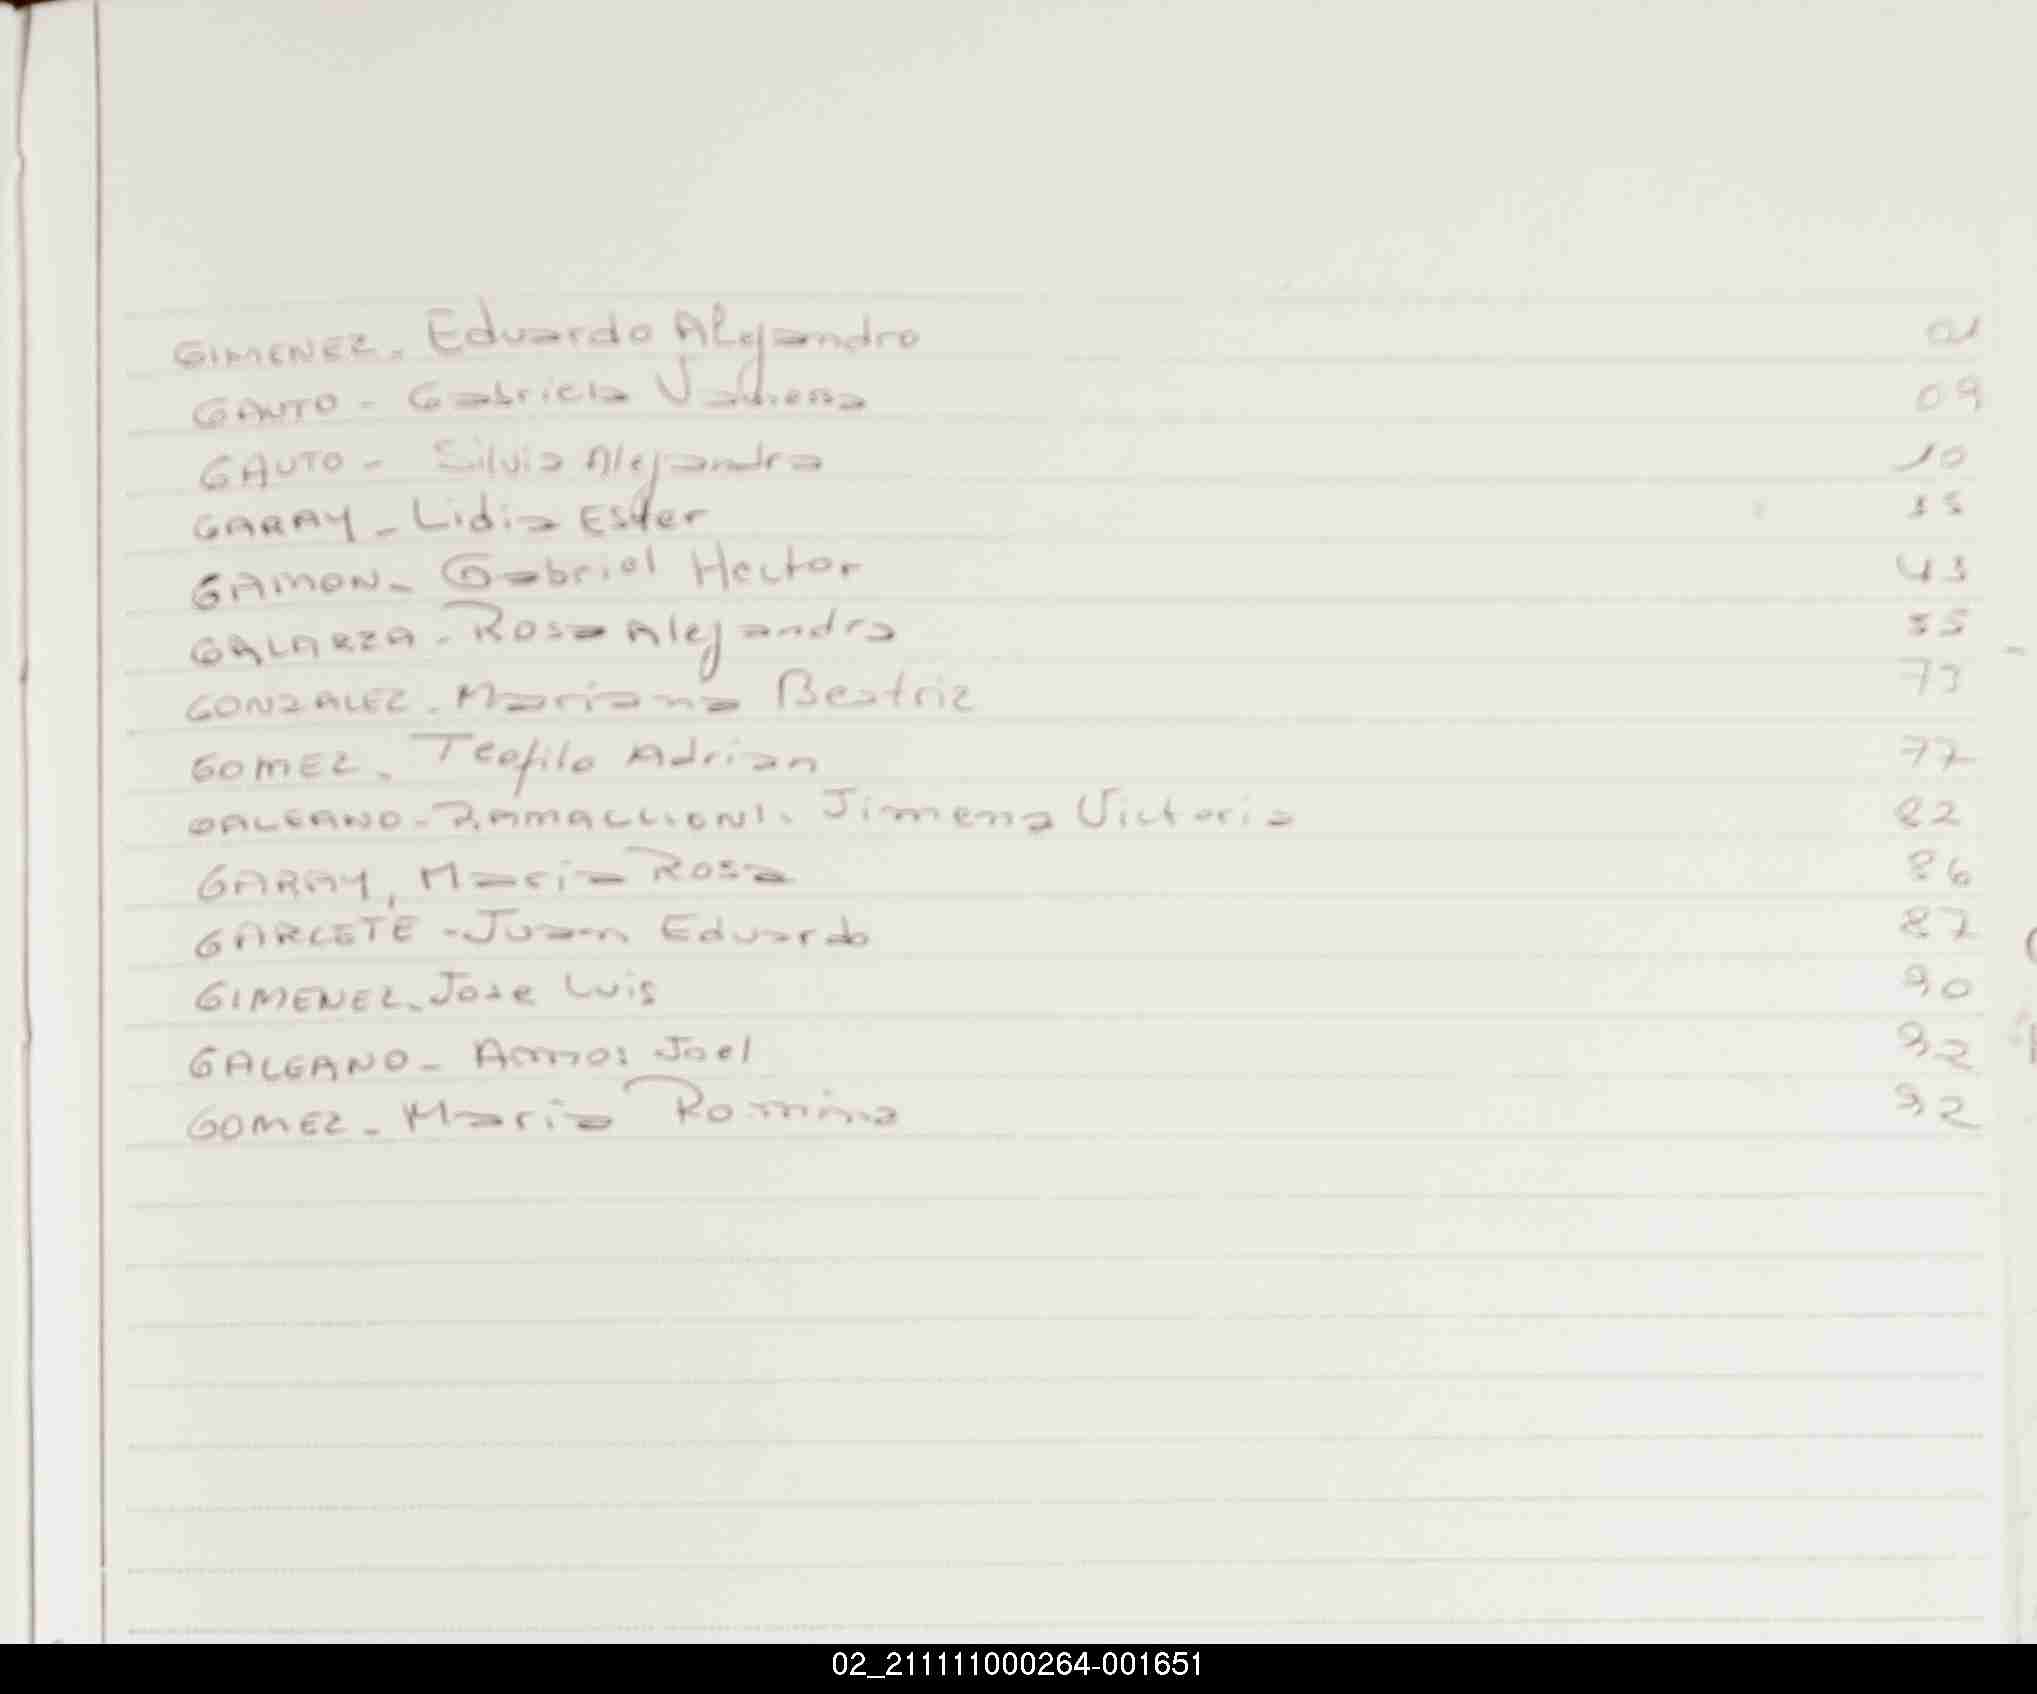 GIMENEZ. Eduardo Alejandro 01
GAUTO - Gabriela 09
GAUTO - Silvia Alejandra 10
GARAY - Lidia Ester 35
GAMON - Gabriel Hector 43
GALARZA - Rosa Alejandra 55
GONZALEZ. Mariana Beatriz 73
GOMEZ. Teofilo Adrian 77
GALEANO - RAMACCIONI. Jimena Victoria 82
GARAY, Maria Rosa 86
GARCETE - Juan Eduardo 87
GIMENEZ. Jose Luis 90
GALEANO - Amos Joel 92
GOMEZ - Maria Romina 92
02_211111000264-001651